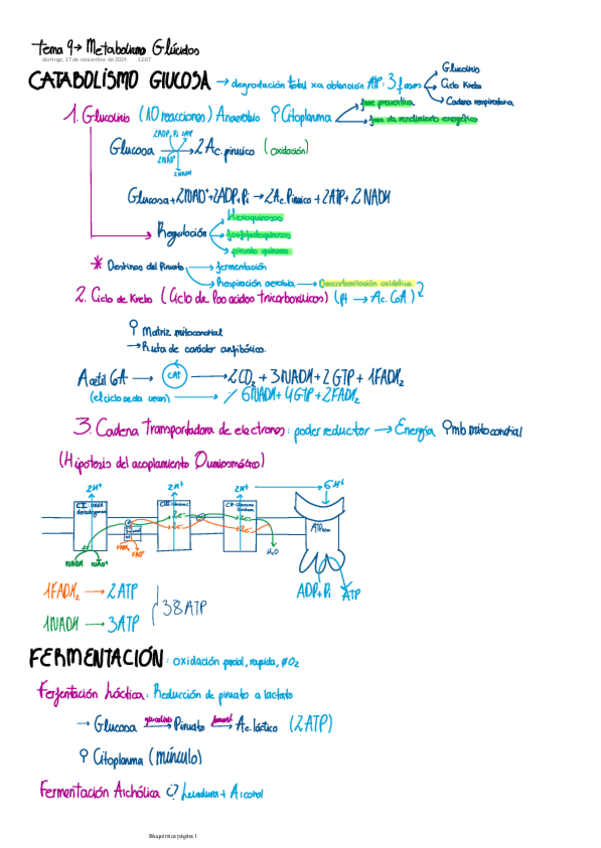 Tema 9→ Metabolismo Glúcidos
domingo, 17 de noviembre de 2024 12:07
CATABOLISMO GLUCOSA → degradación total xa obtención ATP: 3 fases
Glucolisis
Ciclo Krebs
Cadena respiratoria
1. Glucolisis (10 reacciones) Anaerobio Citoplasma
fase preparativa
fase de rendimiento energético
2ADP, Pi 2ATP
Glucosa → 2 Ac. piruvico (oxidación)
2NAD+
2NADH
Glucosa + 2NAD+ + 2ADP + Pi → 2Ac. Piruvico + 2ATP + 2NADH
Regulación
Hexoquinasas
fosfofructoquinasa
piruvato quinasa
* Destinos del Piruvato → fermentación
→ Respiración aerobia → Descarboxilación oxidativa
2. Ciclo de Krebs (Ciclo de los acidos tricarboxilicos) (Pi → Ac. CoA)
Matriz mitocondrial
→ Ruta de carácter anfibólico.
Acetil CoA → CAT → 2CO2 + 3NADH + 2GTP + 1FADH2
(el ciclo se da 2 veces) → 6NADH + 4GTP + 2FADH2
3. Cadena Transportadora de electrones: poder reductor → Energía mb mitocondrial
(Hipotesis del acoplamiento Quimiosmótico)
2H+ 2H+ 2H+ → 6H+
CI
CIII
CIV
ATPasa
2e- 2e-
2e- 2e-
FADH2 FAD+
NADH NAD+
H2O
ADP+Pi ATP
1FADH2 → 2ATP
1NADH → 3ATP
38ATP
FERMENTACIÓN: oxidación parcial, rapida, ∅O2
Fermentación láctica: Reducción de piruvato a lactato
→ Glucosa glucolisis → Piruvato ferment → Ac. láctico (2ATP)
Citoplasma (múnculo)
Fermentación Alchólica ¿? Levadura + Alcohol
Bioquimica página 1